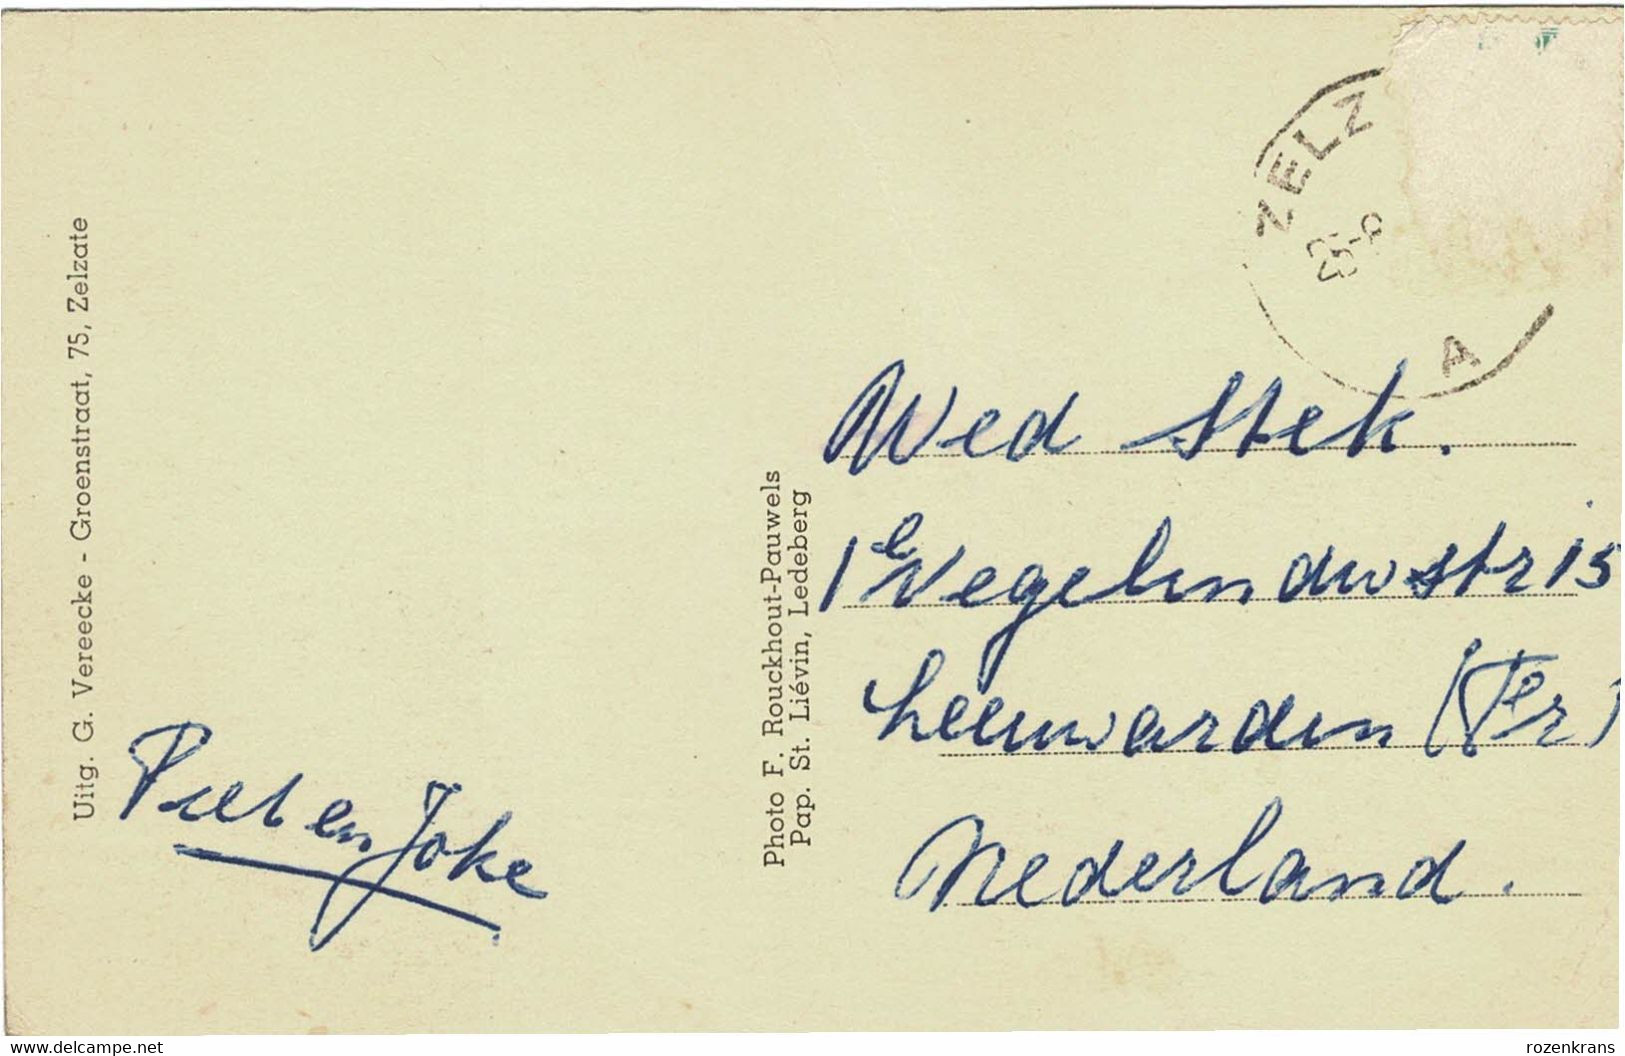 Uitg. G. Vereecke - Groenstraat, 75, Zelzate
Piet en Joke
Photo F. Rouckhout-Pauwels
Pap. St. Liévin, Ledeberg
ZELZ
A
Wed Stek.
1e Vegelindwstr 15
Leeuwarden (Fr)
Nederland.
www.delcampe.net
rozenkrans